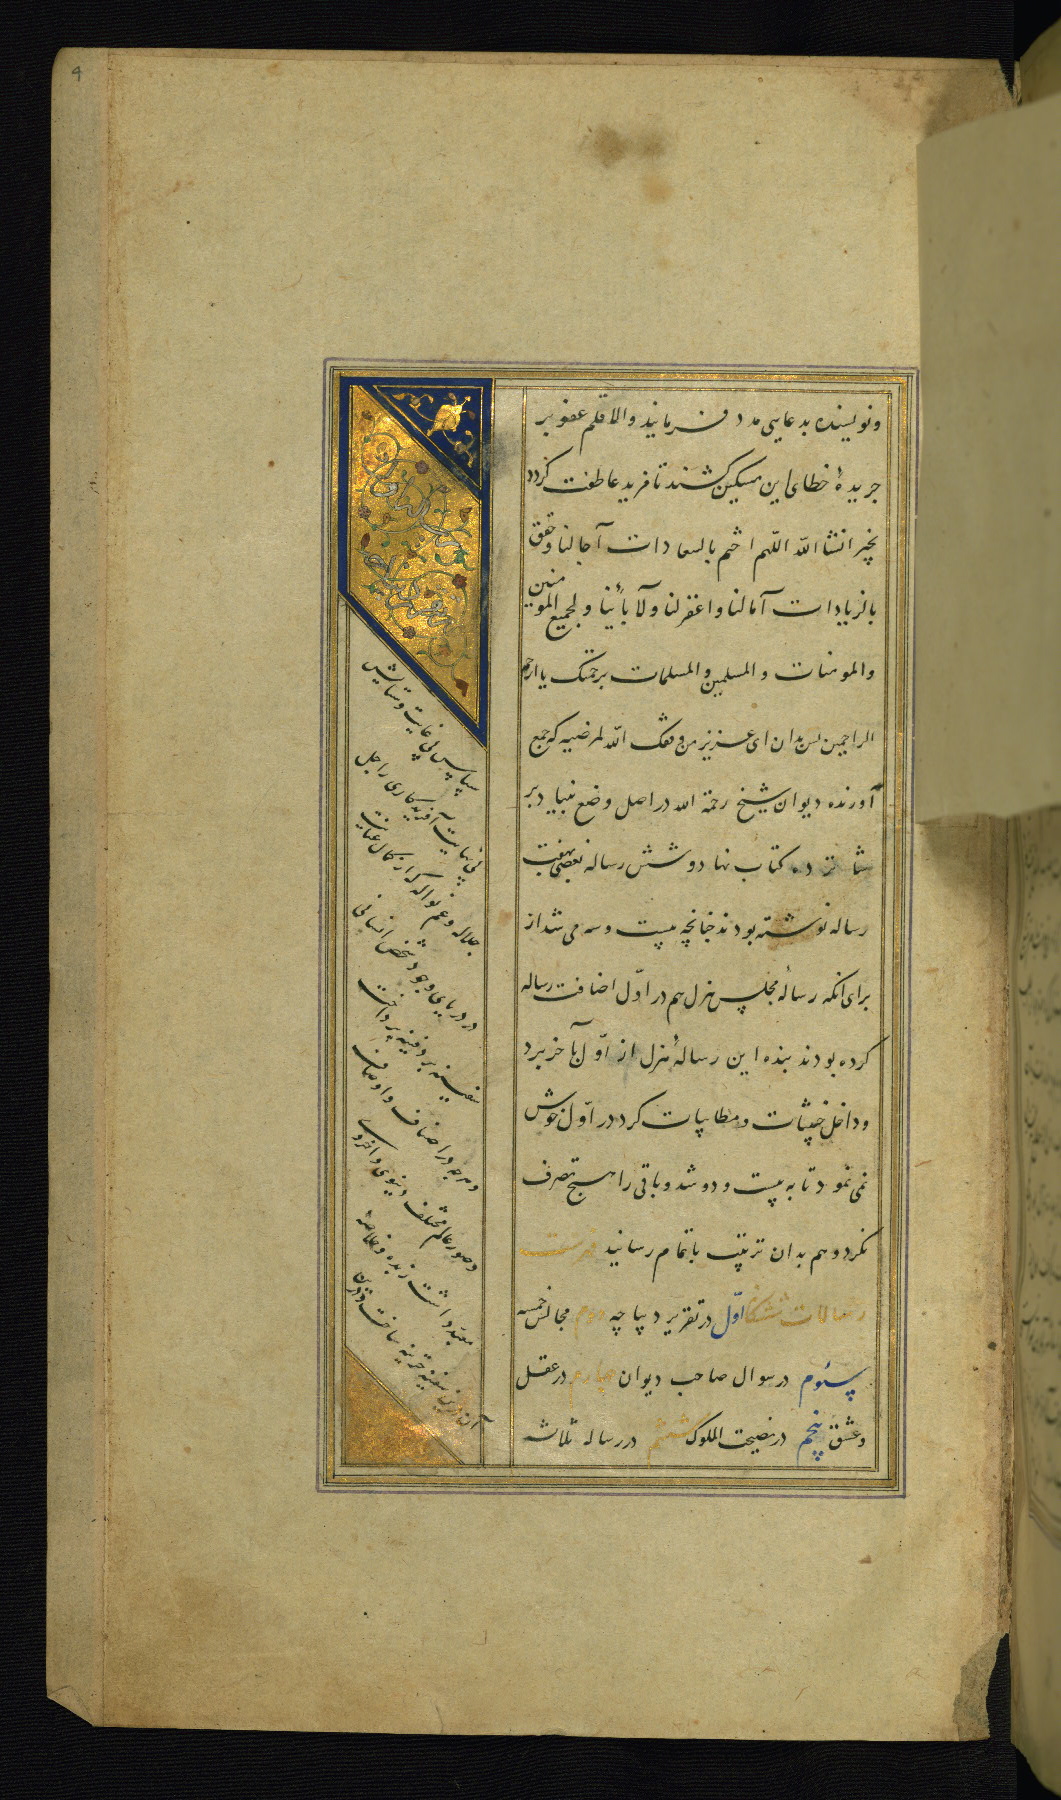 و نویسنده بدعایی مدد فرمایند والا قلم عفو بر
جریدهٔ خطای این مسکین کشند تا فرید عاطفت کردد
بخیر انشا الله اللهم اختم بالسعادات آجالنا وحقق
بالزیادات آمالنا واغفر لنا ولآبائنا ولجمیع المومنین
والمومنات والمسلمین والمسلمات برحمتک یا ارحم
الراحمین بدان ای عزیز من وفقک الله لمرضیه که جمع
آورنده دیوان شیخ رحمة الله در اصل وضع بنیاد بر
کتاب نهاد و شش رساله بعضی بهفت
رساله نوشته بودند چنانچه بیست و سه می شد از
برای انکه رسالهٔ مجلس هزل هم در اوّل اضافت رساله
کرده بودند بنده این رسالهٔ هزل از اوّل بآخر برد
و داخل خبیثات و مطایبات کرد در اوّل خوش
نمی نمود تا به بیست و دو شد و باقی را هیچ تصرف
نکرد و هم بدان ترتیب باتمام رسانید فهرست
رسالات ششکانه اوّل در تقریر دیباچه دوم مجالس خمسه
سئوم در سوال صاحب دیوان چهارم در عقل
و عشق پنجم در نصیحت الملوک ششم در رساله ثلاثه
سپاس بی غایت و ستایش
بی نهایت آفریدکاری را جل
جلاله و عم نواله که از کمال عنایت
در دریای وجود شخص انسانی
سفینه پر دفینه پرداخت
و هرچه در اصناف و اوصاف
و صور عالم مختلف دنیوی و اخروی
تعبیه داشت زبده و خلاصه
آن درین سفینه خزینه ساخت و درین